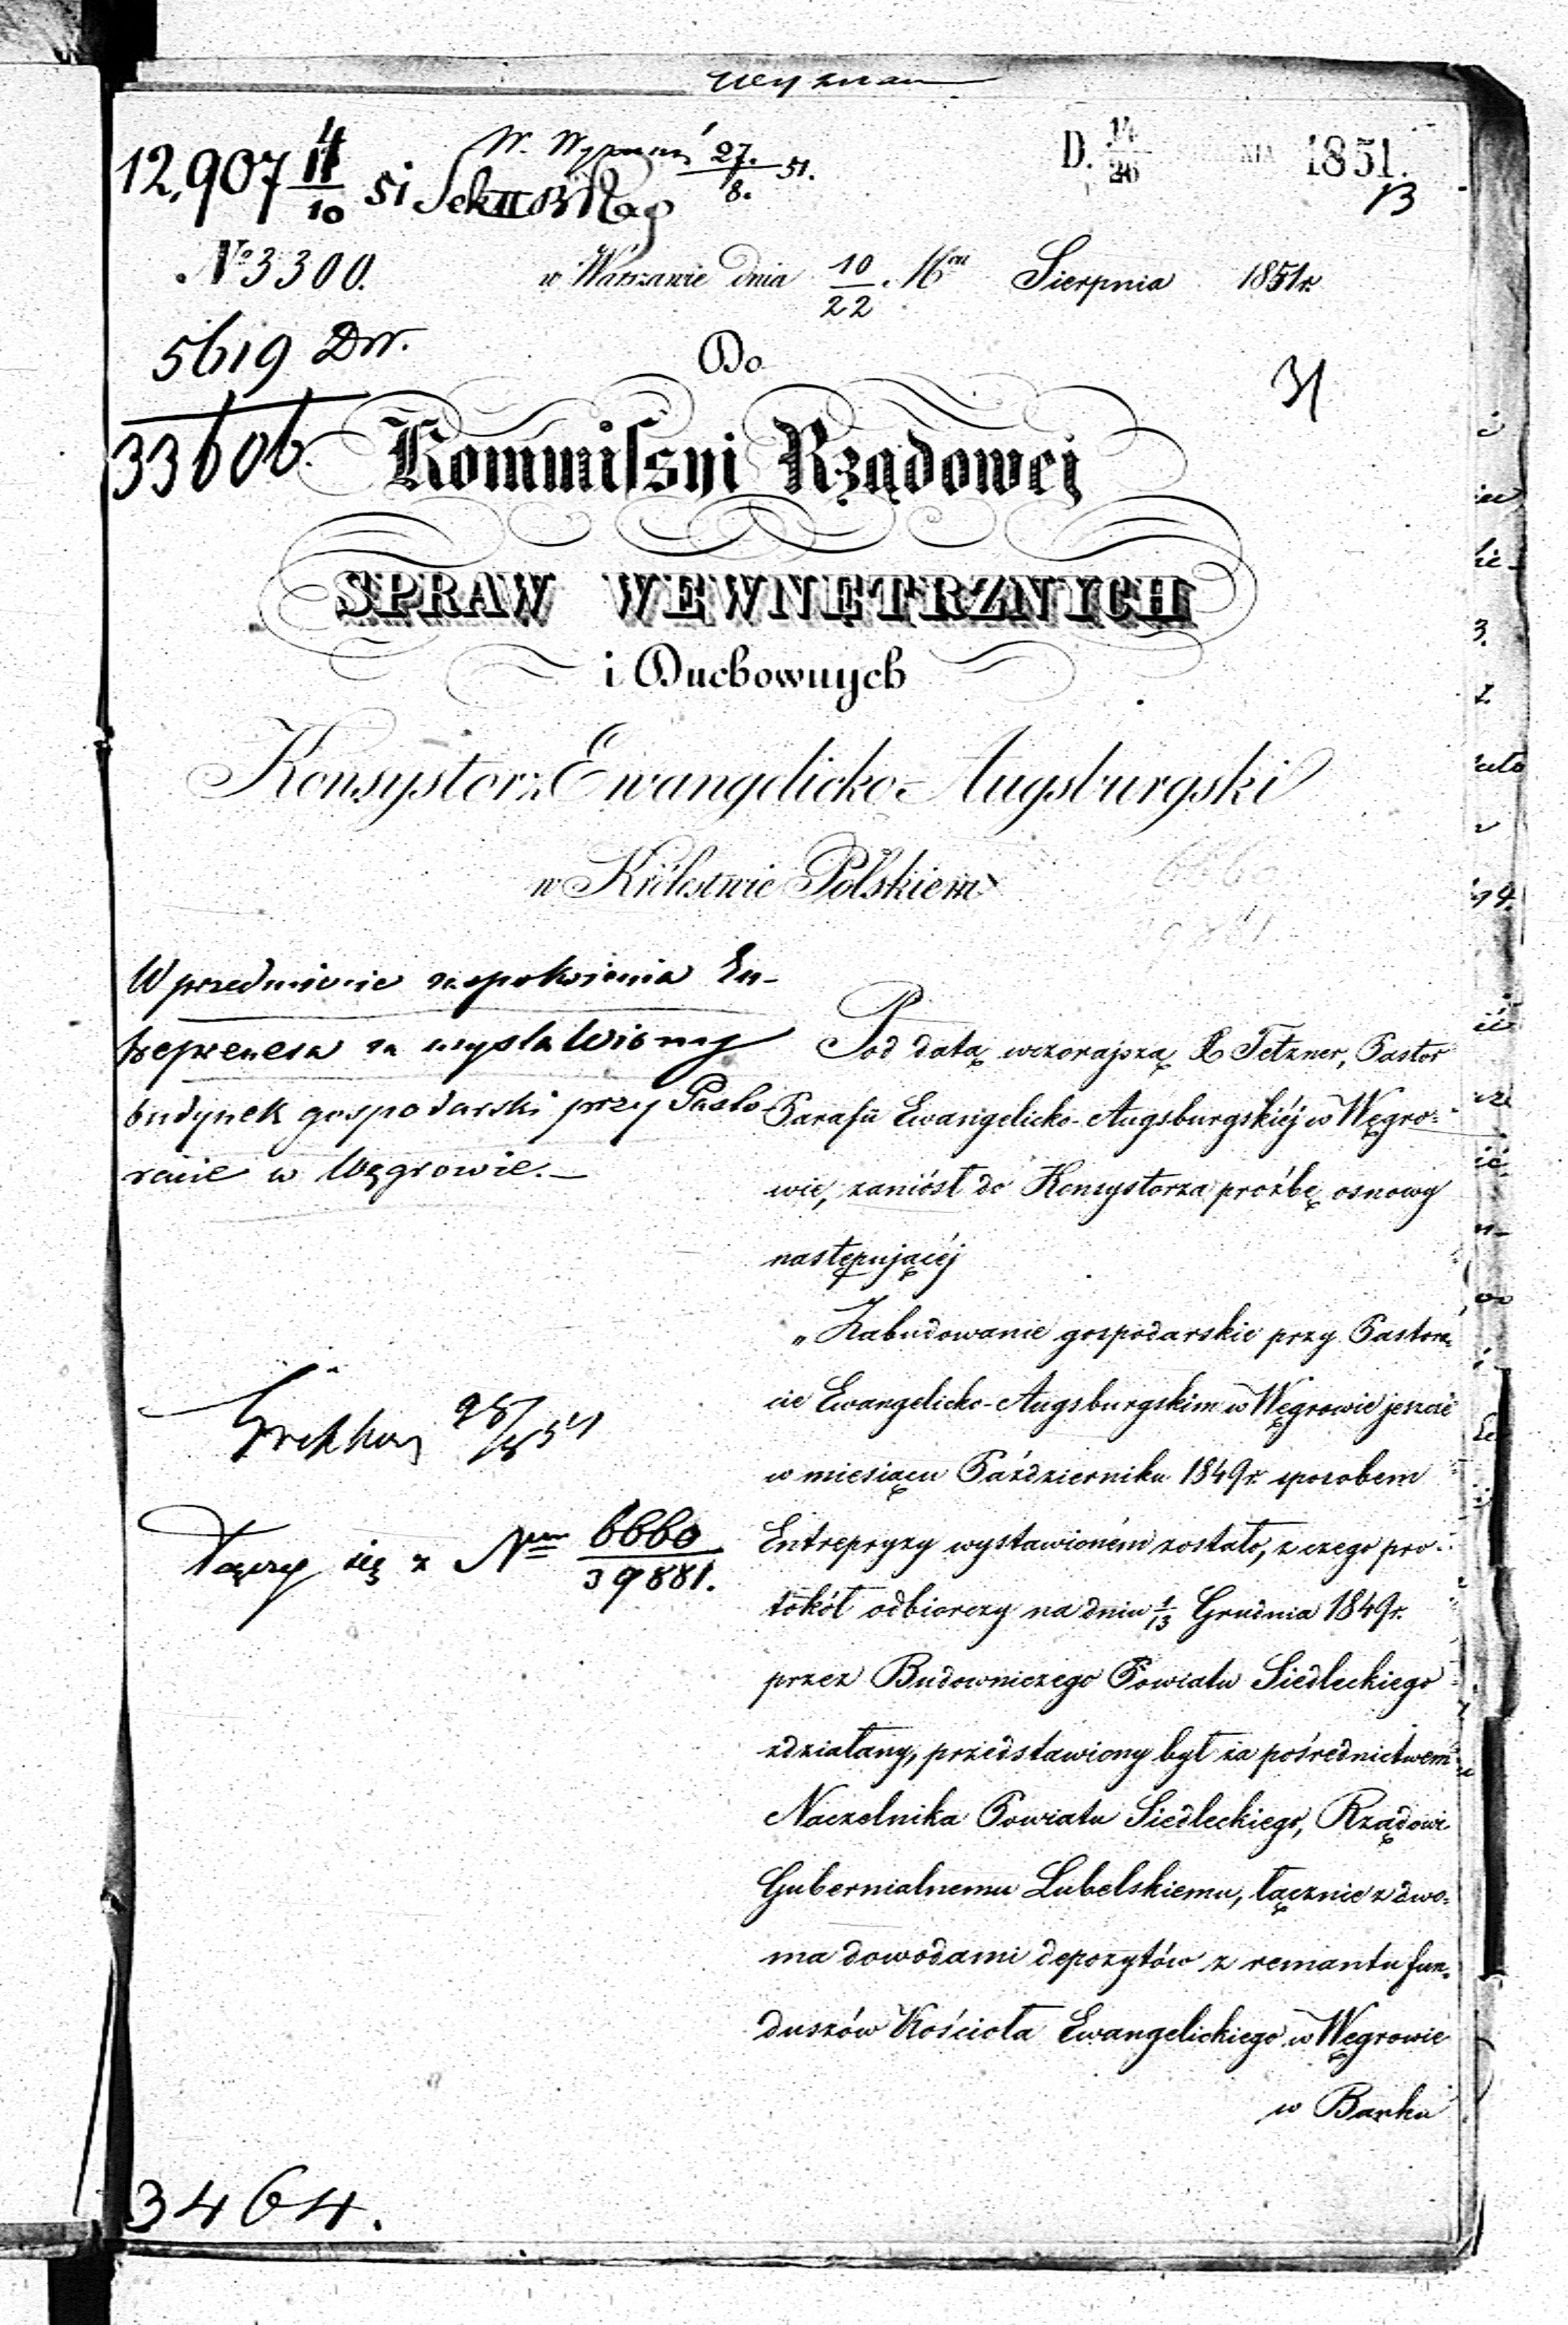 12,907 11/10 51 Sek II
27./8. 51.
D. 14/26 1851.
13
№ 3300.
w Warszawie dnia 10/22. Sierpnia 1851 r.
5619 Dw.
33606.
Do
31
Kommissyi Rządowej
SPRAW WEWNĘTRZNYCH
i Duchownych
Konsystorz Ewangelicko-Augsburgski
w Królestwie Polskiem
W przedmiocie zaspokojenia En-
treprenera za wystawiony
budynek gospodarski przy Pasto-
racie w Węgrowie.—
Łączy się z Nrem 6660/39881.
Pod datą wczorajszą X Tetzner, Pastor
Parafii Ewangelicko-Augsburgskiéj w Węgro-
wie, zaniósł do Konsystorza proźbę osnowy
następującéj
„Zabudowanie gospodarskie przy Pastora-
cie Ewangelicko-Augsburgskim w Węgrowie jeszcze
w miesiącu Październiku 1849 r. sposobem
Entrepryzy wystawioném zostało, z czego pro-
tokół odbiorczy na dniu 1/13 Grudnia 1849 r.
przez Budowniczego Powiatu Siedleckiego
zdziałany, przedstawiony był za pośrednictwem
Naczelnika Powiatu Siedleckiego, Rządowi
Gubernialnemu Lubelskiemu, łącznie z dwo-
ma dowodami depozytów z remanentu fun-
duszów Kościoła Ewangelickiego w Węgrowie
w Banku
3464.